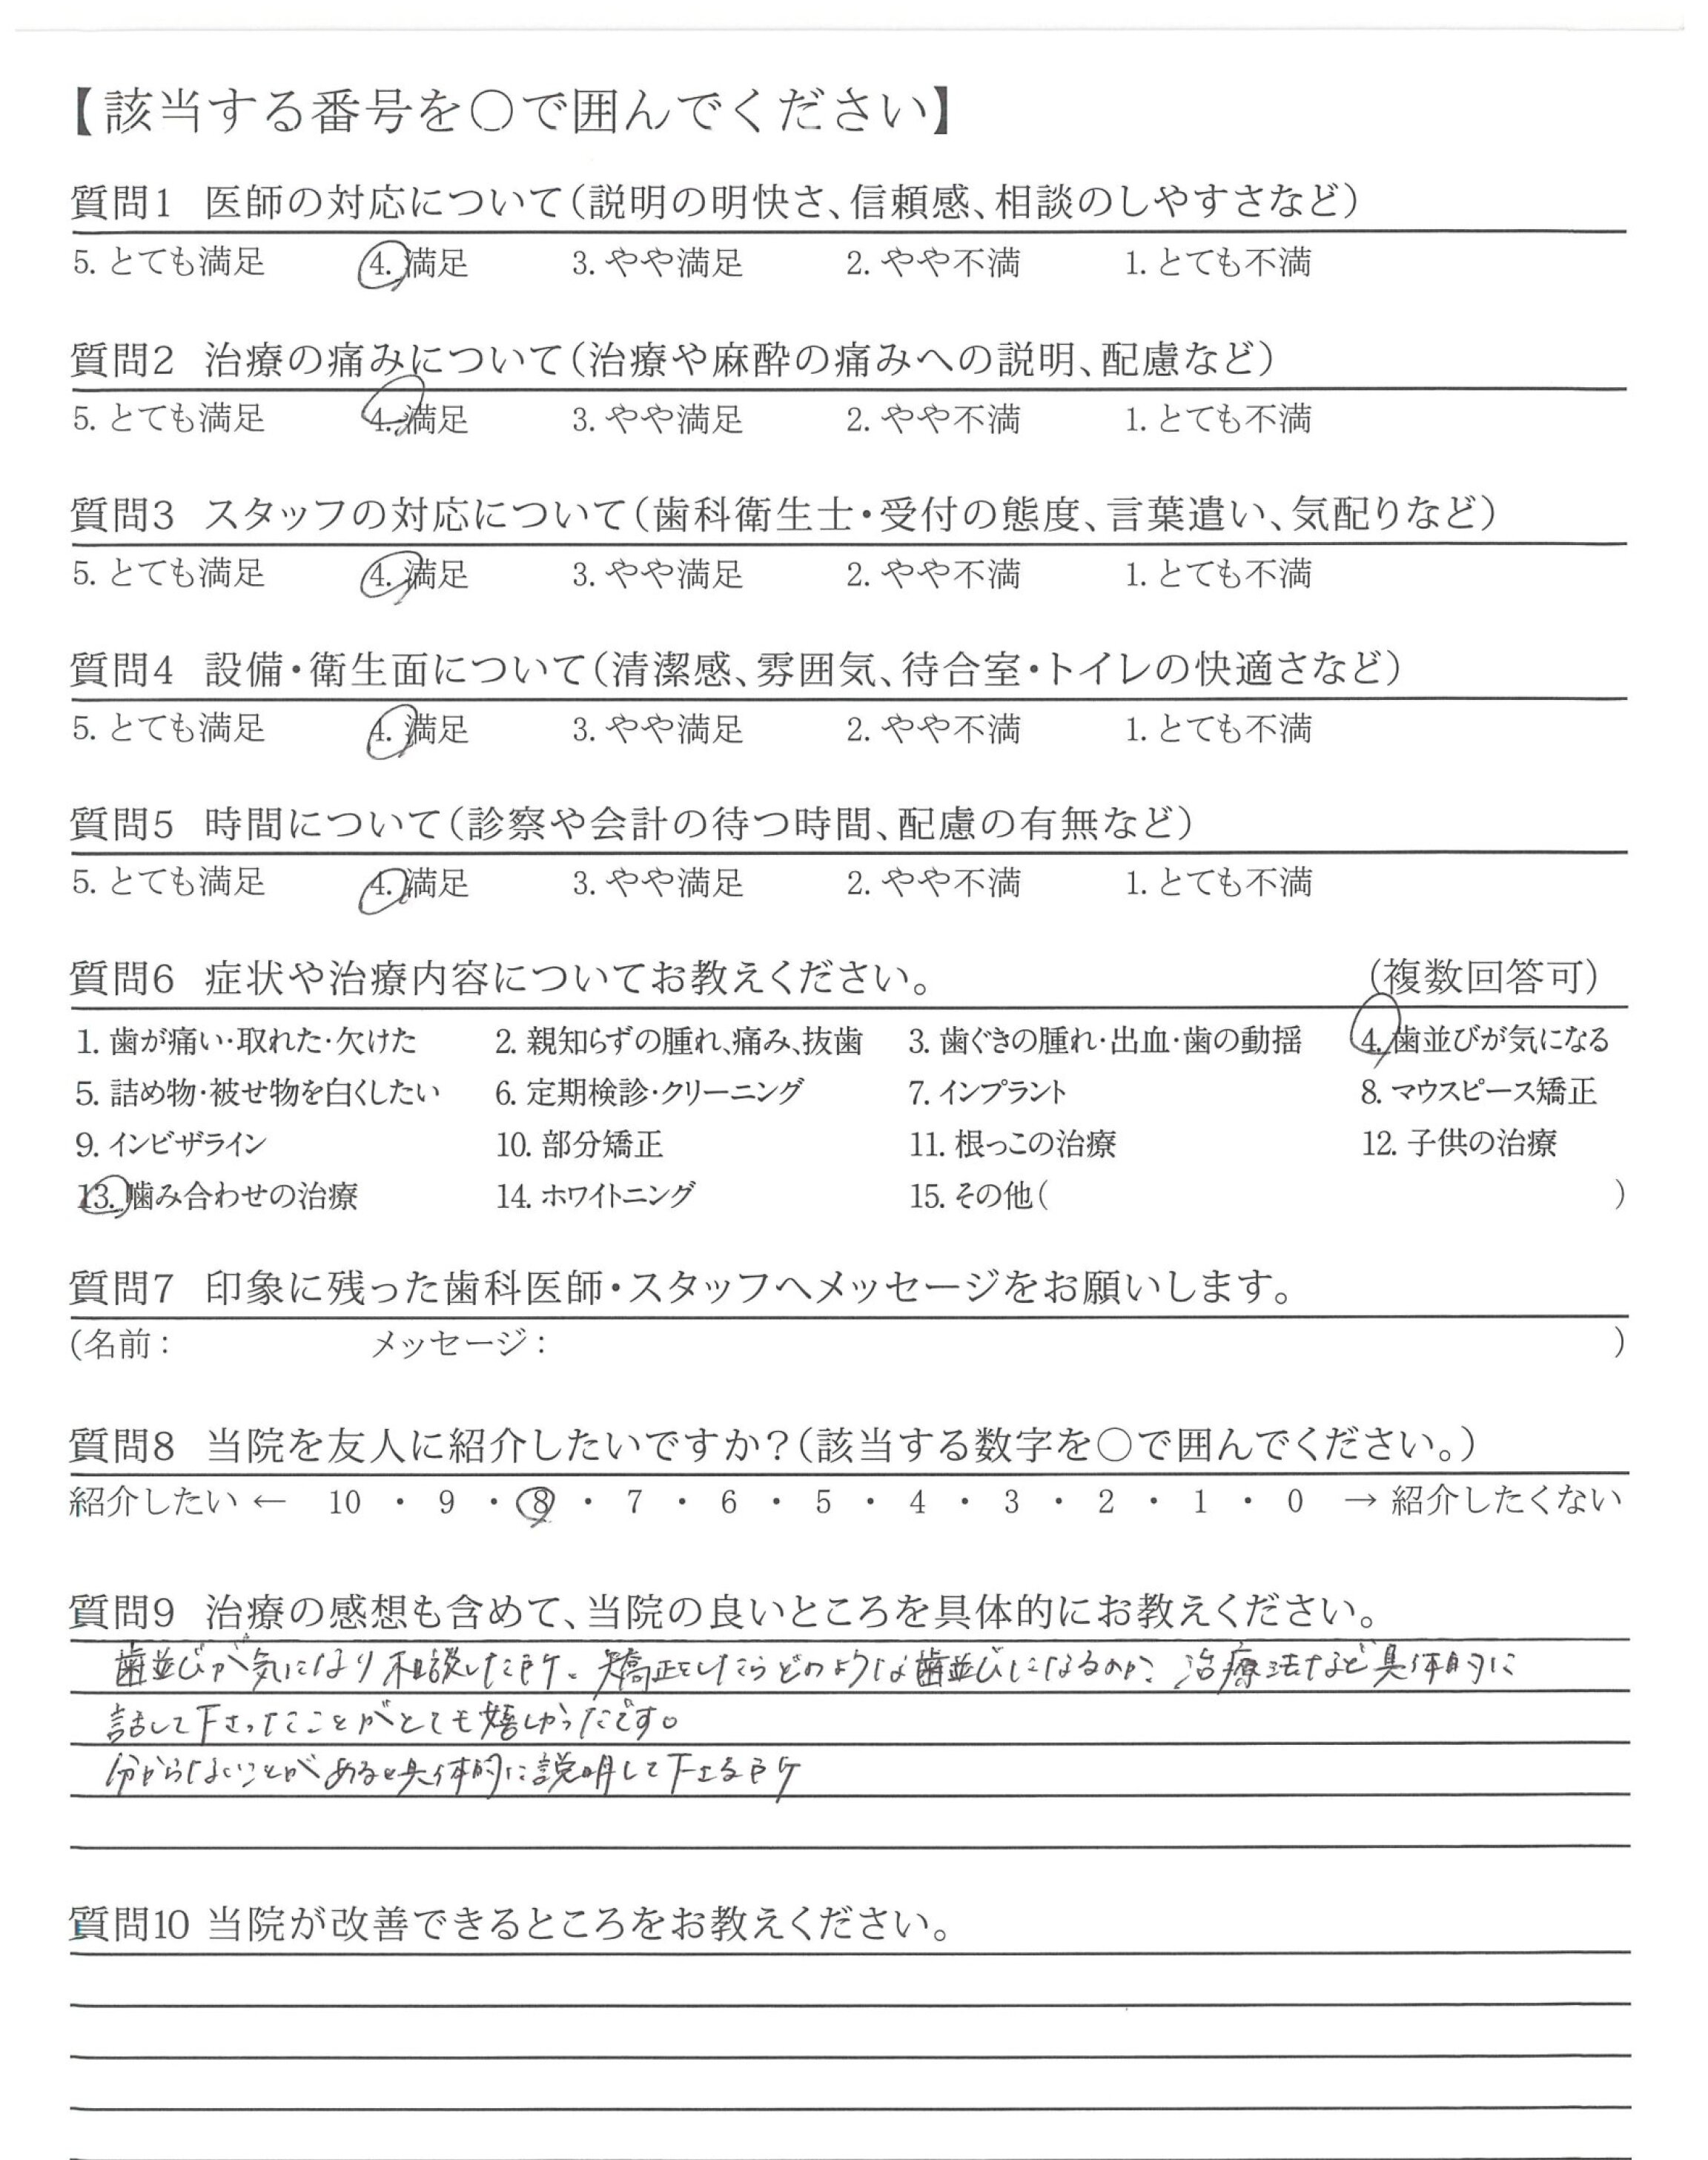 【該当する番号を〇で囲んでください】
質問1 医師の対応について(説明の明快さ、信頼感、相談のしやすさなど)
5. とても満足 4. 満足 3. やや満足 2. やや不満 1. とても不満
質問2 治療の痛みについて(治療や麻酔の痛みへの説明、配慮など)
5. とても満足 4. 満足 3. やや満足 2. やや不満 1. とても不満
質問3 スタッフの対応について(歯科衛生士・受付の態度、言葉遣い、気配りなど)
5. とても満足 4. 満足 3. やや満足 2. やや不満 1. とても不満
質問4 設備・衛生面について(清潔感、雰囲気、待合室・トイレの快適さなど)
5. とても満足 4. 満足 3. やや満足 2. やや不満 1. とても不満
質問5 時間について(診察や会計の待つ時間、配慮の有無など)
5. とても満足 4. 満足 3. やや満足 2. やや不満 1. とても不満
質問6 症状や治療内容についてお教えください。 (複数回答可)
1. 歯が痛い・取れた・欠けた 2. 親知らずの腫れ、痛み、抜歯 3. 歯ぐきの腫れ・出血・歯の動揺 4. 歯並びが気になる
5. 詰め物・被せ物を白くしたい 6. 定期検診・クリーニング 7. インプラント 8. マウスピース矯正
9. インビザライン 10. 部分矯正 11. 根っこの治療 12. 子供の治療
13. 噛み合わせの治療 14. ホワイトニング 15. その他( )
質問7 印象に残った歯科医師・スタッフへメッセージをお願いします。
(名前: メッセージ: )
質問8 当院を友人に紹介したいですか?(該当する数字を〇で囲んでください。)
紹介したい ← 10 ・ 9 ・ 8 ・ 7 ・ 6 ・ 5 ・ 4 ・ 3 ・ 2 ・ 1 ・ 0 → 紹介したくない
質問9 治療の感想も含めて、当院の良いところを具体的にお教えください。
歯並びが気になり相談した所、矯正をしたらどのような歯並びになるのか、治療法など具体的に
話して下さったことがとても嬉しかったです。
分からないことがあると具体的に説明して下さる所
質問10 当院が改善できるところをお教えください。